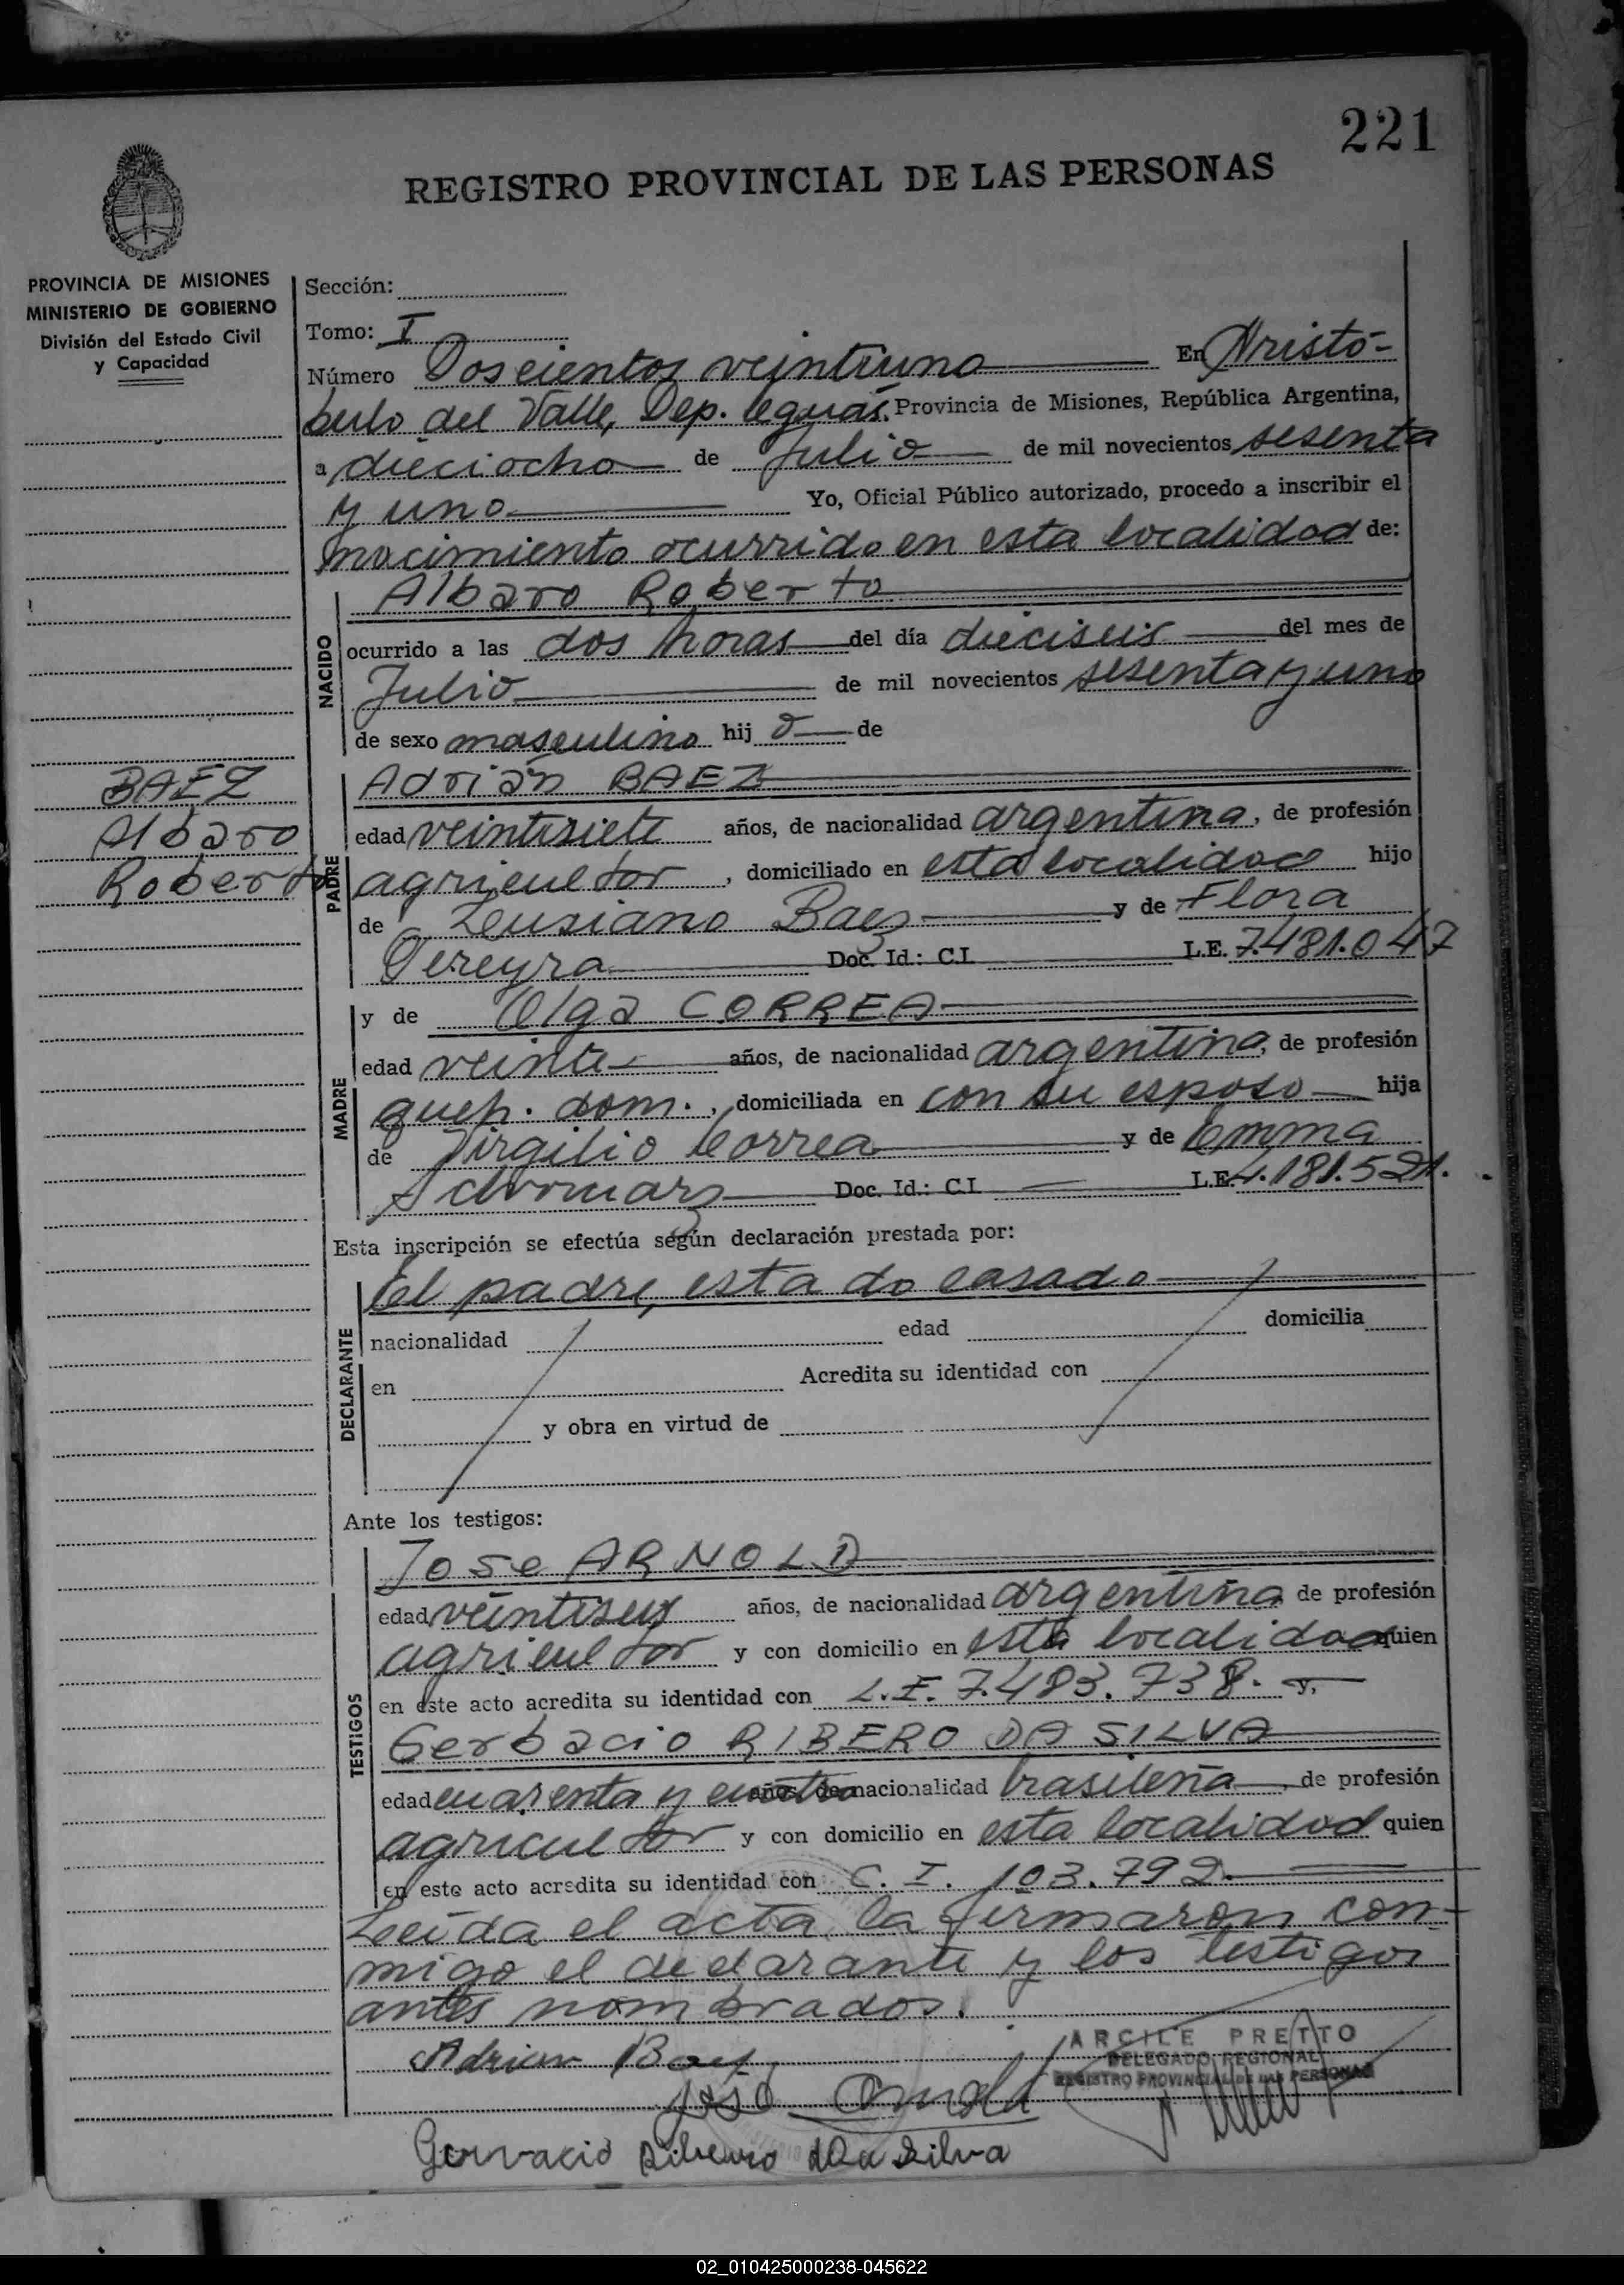 221
REGISTRO PROVINCIAL DE LAS PERSONAS
PROVINCIA DE MISIONES
MINISTERIO DE GOBIERNO
División del Estado Civil
y Capacidad
BAEZ
Albaro
Roberto
Sección:
Tomo: I
Número Doscientos veintiuno En Aristó-
bulo del Valle, Dep. Cguás. Provincia de Misiones, República Argentina,
a dieciocho de Julio de mil novecientos sesenta
y uno Yo, Oficial Público autorizado, procedo a inscribir el
nacimiento ocurrido en esta localidad de:
NACIDO
Albaro Roberto
ocurrido a las dos horas del día dieciseis del mes de
Julio de mil novecientos sesenta y uno
de sexo masculino hij o de
PADRE
Adrián BAEZ
edad veintisiete años, de nacionalidad argentina, de profesión
agricultor, domiciliado en esta localidad hijo
de Leusiano Baez y de Flora
Pereyra Doc. Id.: C.I. L.E. 7.481.047
MADRE
y de Olga CORREA
edad veinte años, de nacionalidad argentina, de profesión
queh. dom., domiciliada en con su esposo hija
de Virgilio Correa y de Emma
Doc. Id.: C.I. L.E. 4.181.521.
Esta inscripción se efectúa según declaración prestada por:
DECLARANTE
El padre, estado casado
nacionalidad edad domicilia
en Acredita su identidad con
y obra en virtud de
Ante los testigos:
TESTIGOS
Jose ARNOLD
edad veintiseis años, de nacionalidad argentina de profesión
agricultor y con domicilio en esta localidad quien
en este acto acredita su identidad con L.E. 7.483.738. y,
Gerbacio RIBERO DA SILVA
edad cuarenta y cuatro años, de nacionalidad brasileña, de profesión
agricultor y con domicilio en esta localidad quien
en este acto acredita su identidad con C. I. 103.792.
Leída el acta la firmaron con-
migo el declarante y los testigos
antes nombrados.
Adrian Baez
José Arnold
ARCILE PRETTO
DELEGADO REGIONAL
REGISTRO PROVINCIAL DE LAS PERSONAS
Gervacio Ribeuro Da Silva
02_010425000238-045622